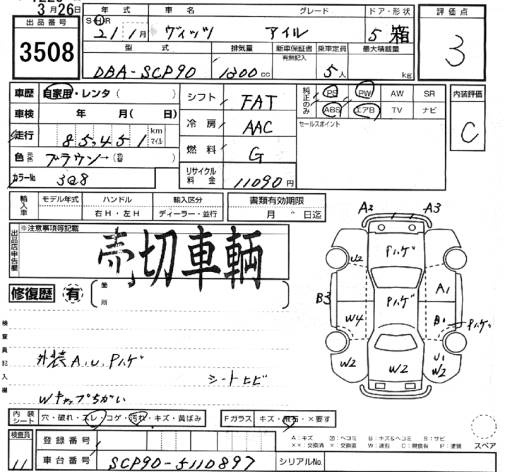 3月26日
出品番号
3508
年式 車名 グレード ドア・形状
SHR 21/1月 ヴィッツ アイル 5 箱
型式 排気量 新車保証書 有無記入 乗車定員 最大積載量
DBA-SCP90 1300cc 5人 kg
評価点
3
車歴 自家用・レンタ( )
車検 年 月( 日)
走行 85,451 km マイル
色 ブラウン→
カラーNo. 308
シフト FAT
冷房 AAC
燃料 G
リサイクル料金 11090円
純正のみ PS PW AW SR
ABS エアB TV ナビ
セールスポイント
内装評価
C
輸入車 モデル年式 ハンドル 輸入区分
右H・左H ディーラー・並行
書類有効期限
月 日迄
出品店申告欄
※注意事項等記載
売切車輌
修復歴 有 箇所
検査員記入欄
外装A,U,Pハゲ
シートヒビ
Wキャップちがい
A2 A3
U2 Pハゲ
B3 Pハゲ A1
W4 B1 Pハゲ
W2 W2 U1 W2
内装シート 穴・破れ・スレ・コゲ・汚れ・キズ・黄ばみ
Fガラス キズ・飛石・×要す
A:キズ U:ヘコミ B:キズ&ヘコミ S:サビ
××:交換済 ×:交換 W:波 C:腐食 P:塗装
スペア
検査員 11
登録番号
車台番号 SCP90-5110897
シリアルNo.